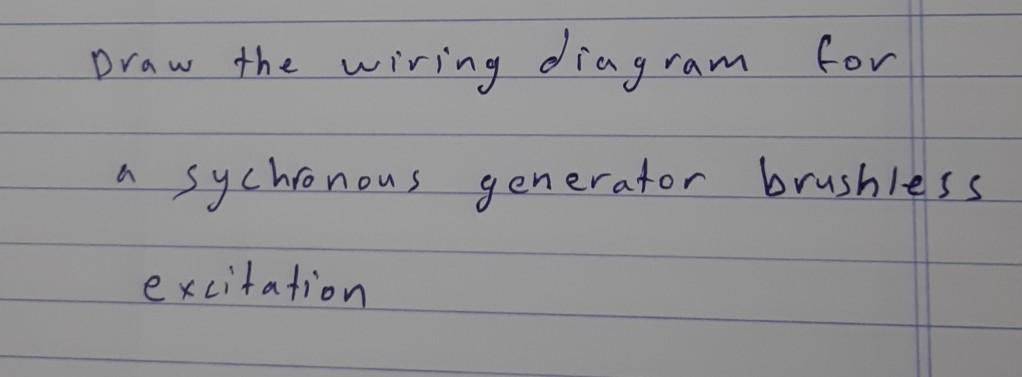 Draw the wiring diagram for
a sychronous generator brushless
excitation